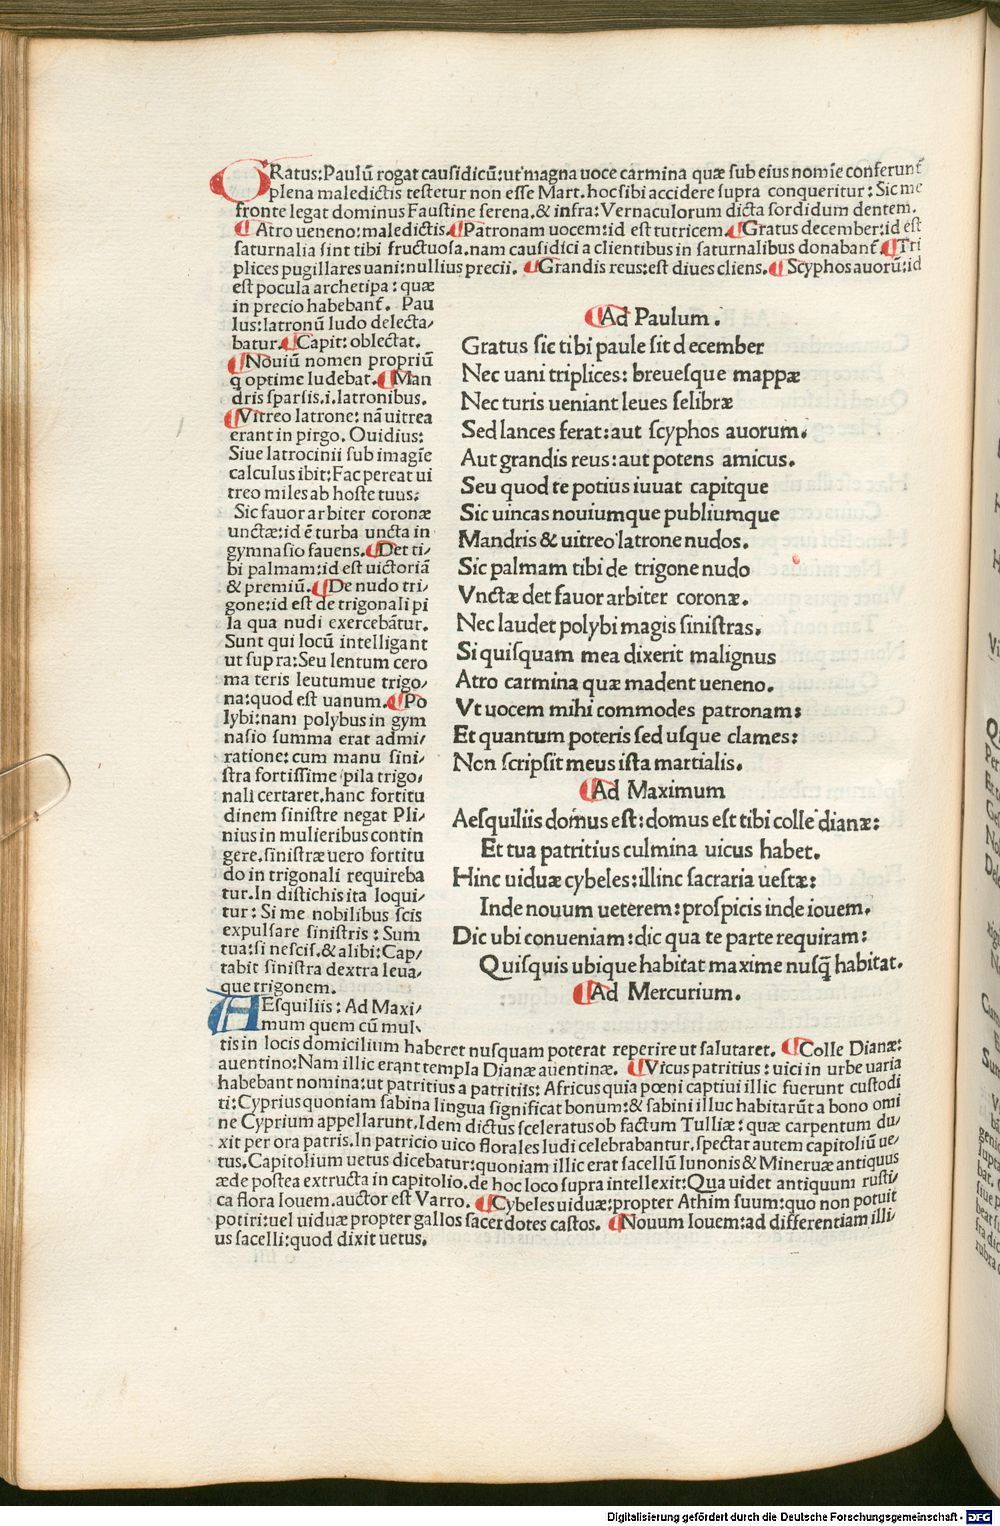 GRatus: Paulū rogat causidicū: ut magna uoce carmina quæ sub eius nomīe conferunt᷑
plena maledictis testetur non esse Mart. hoc sibi accidere supra conqueritur: Sic me
fronte legat dominus Faustine serena. & infra: Vernaculorum dicta sordidum dentem.
¶ Atro ueneno: maledictis. ¶ Patronam uocem: id est tutricem. ¶ Gratus december: id est
saturnalia sint tibi fructuosa. nam causidici a clientibus in saturnalibus donabant᷑. ¶ Tri
plices pugillares uani: nullius precii. ¶ Grandis reus: est diues cliens. ¶ Scyphos auorū: id
est pocula archetipa: quæ
in precio habebant᷑. Pau
lus: latronū ludo delecta/
batur. ¶ Capit: oblectat.
¶ Nouiū nomen propriū
q optime ludebat. ¶ Man
dris sparsis. i. latronibus.
¶ Vitreo latrone: nā uitrea
erant in pirgo. Ouidius:
Siue latrocinii sub imagīe
calculus ibit: Fac pereat ui
treo miles ab hoste tuus:
Sic fauor arbiter coronæ
unctæ: id ē turba uncta in
gymnasio fauens. ¶ Det ti/
bi palmam: id est uictoriā
& premiū. ¶ De nudo tri/
gone: id est de trigonali pi
la qua nudi exercebātur.
Sunt qui locū intelligant
ut supra: Seu lentum cero
ma teris leutumue trigo/
na: quod est uanum. ¶ Po
lybi: nam polybus in gym
nasio summa erat admi/
ratione: cum manu sini/
stra fortissime pila trigo/
nali certaret. hanc fortitu
dinem sinistre negat Pli/
nius in mulieribus contin
gere. sinistræ uero fortitu
do in trigonali requireba
tur. In distichis ita loqui/
tur: Si me nobilibus scis
expulsare sinistris: Sum
tua: si nescis. & alibi: Cap/
tabit sinistra dextra leua/
que trigonem.
¶ Ad Paulum.
Gratus sic tibi paule sit december
Nec uani triplices: breuesque mappæ
Nec turis ueniant leues selibræ
Sed lances ferat: aut scyphos auorum.
Aut grandis reus: aut potens amicus.
Seu quod te potius iuuat capitque
Sic uincas nouiumque publiumque
Mandris & uitreo latrone nudos.
Sic palmam tibi de trigone nudo
Vnctæ det fauor arbiter coronæ.
Nec laudet polybi magis sinistras.
Si quisquam mea dixerit malignus
Atro carmina quæ madent ueneno.
Vt uocem mihi commodes patronam:
Et quantum poteris sed usque clames:
Non scripsit meus ista martialis.
¶ Ad Maximum
Aesquiliis domus est: domus est tibi colle dianæ:
Et tua patritius culmina uicus habet.
Hinc uiduæ cybeles: illinc sacraria uestæ:
Inde nouum ueterem: prospicis inde iouem.
Dic ubi conueniam: dic qua te parte requiram:
Quisquis ubique habitat maxime nusq̄ habitat.
¶ Ad Mercurium.
AEsquiliis: Ad Maxi/
mum quem cū mul
tis in locis domicilium haberet nusquam poterat reperire ut salutaret. ¶ Colle Dianæ:
auentino: Nam illic erant templa Dianæ auentinæ. ¶ Vicus patritius: uici in urbe uaria
habebant nomina: ut patritius a patritiis: Africus quia pœni captiui illic fuerunt custodi
ti: Cyprius quoniam sabina lingua significat bonum: & sabini illuc habitarūt a bono omi
ne Cyprium appellarunt. Idem dictus sceleratus ob factum Tulliæ: quæ carpentum du/
xit per ora patris. In patricio uico florales ludi celebrabantur. spectat autem capitoliū ue/
tus. Capitolium uetus dicebatur: quoniam illic erat sacellū Iunonis & Mineruæ antiquus
æde postea extructa in capitolio. de hoc loco supra intellexit: Qua uidet antiquum rusti/
ca flora Iouem. auctor est Varro. ¶ Cybeles uiduæ: propter Athim suum: quo non potuit
potiri: uel uiduæ propter gallos sacerdotes castos. ¶ Nouum Iouem: ad differentiam illi/
us sacelli: quod dixit uetus.
Digitalisierung gefördert durch die Deutsche Forschungsgemeinschaft - DFG